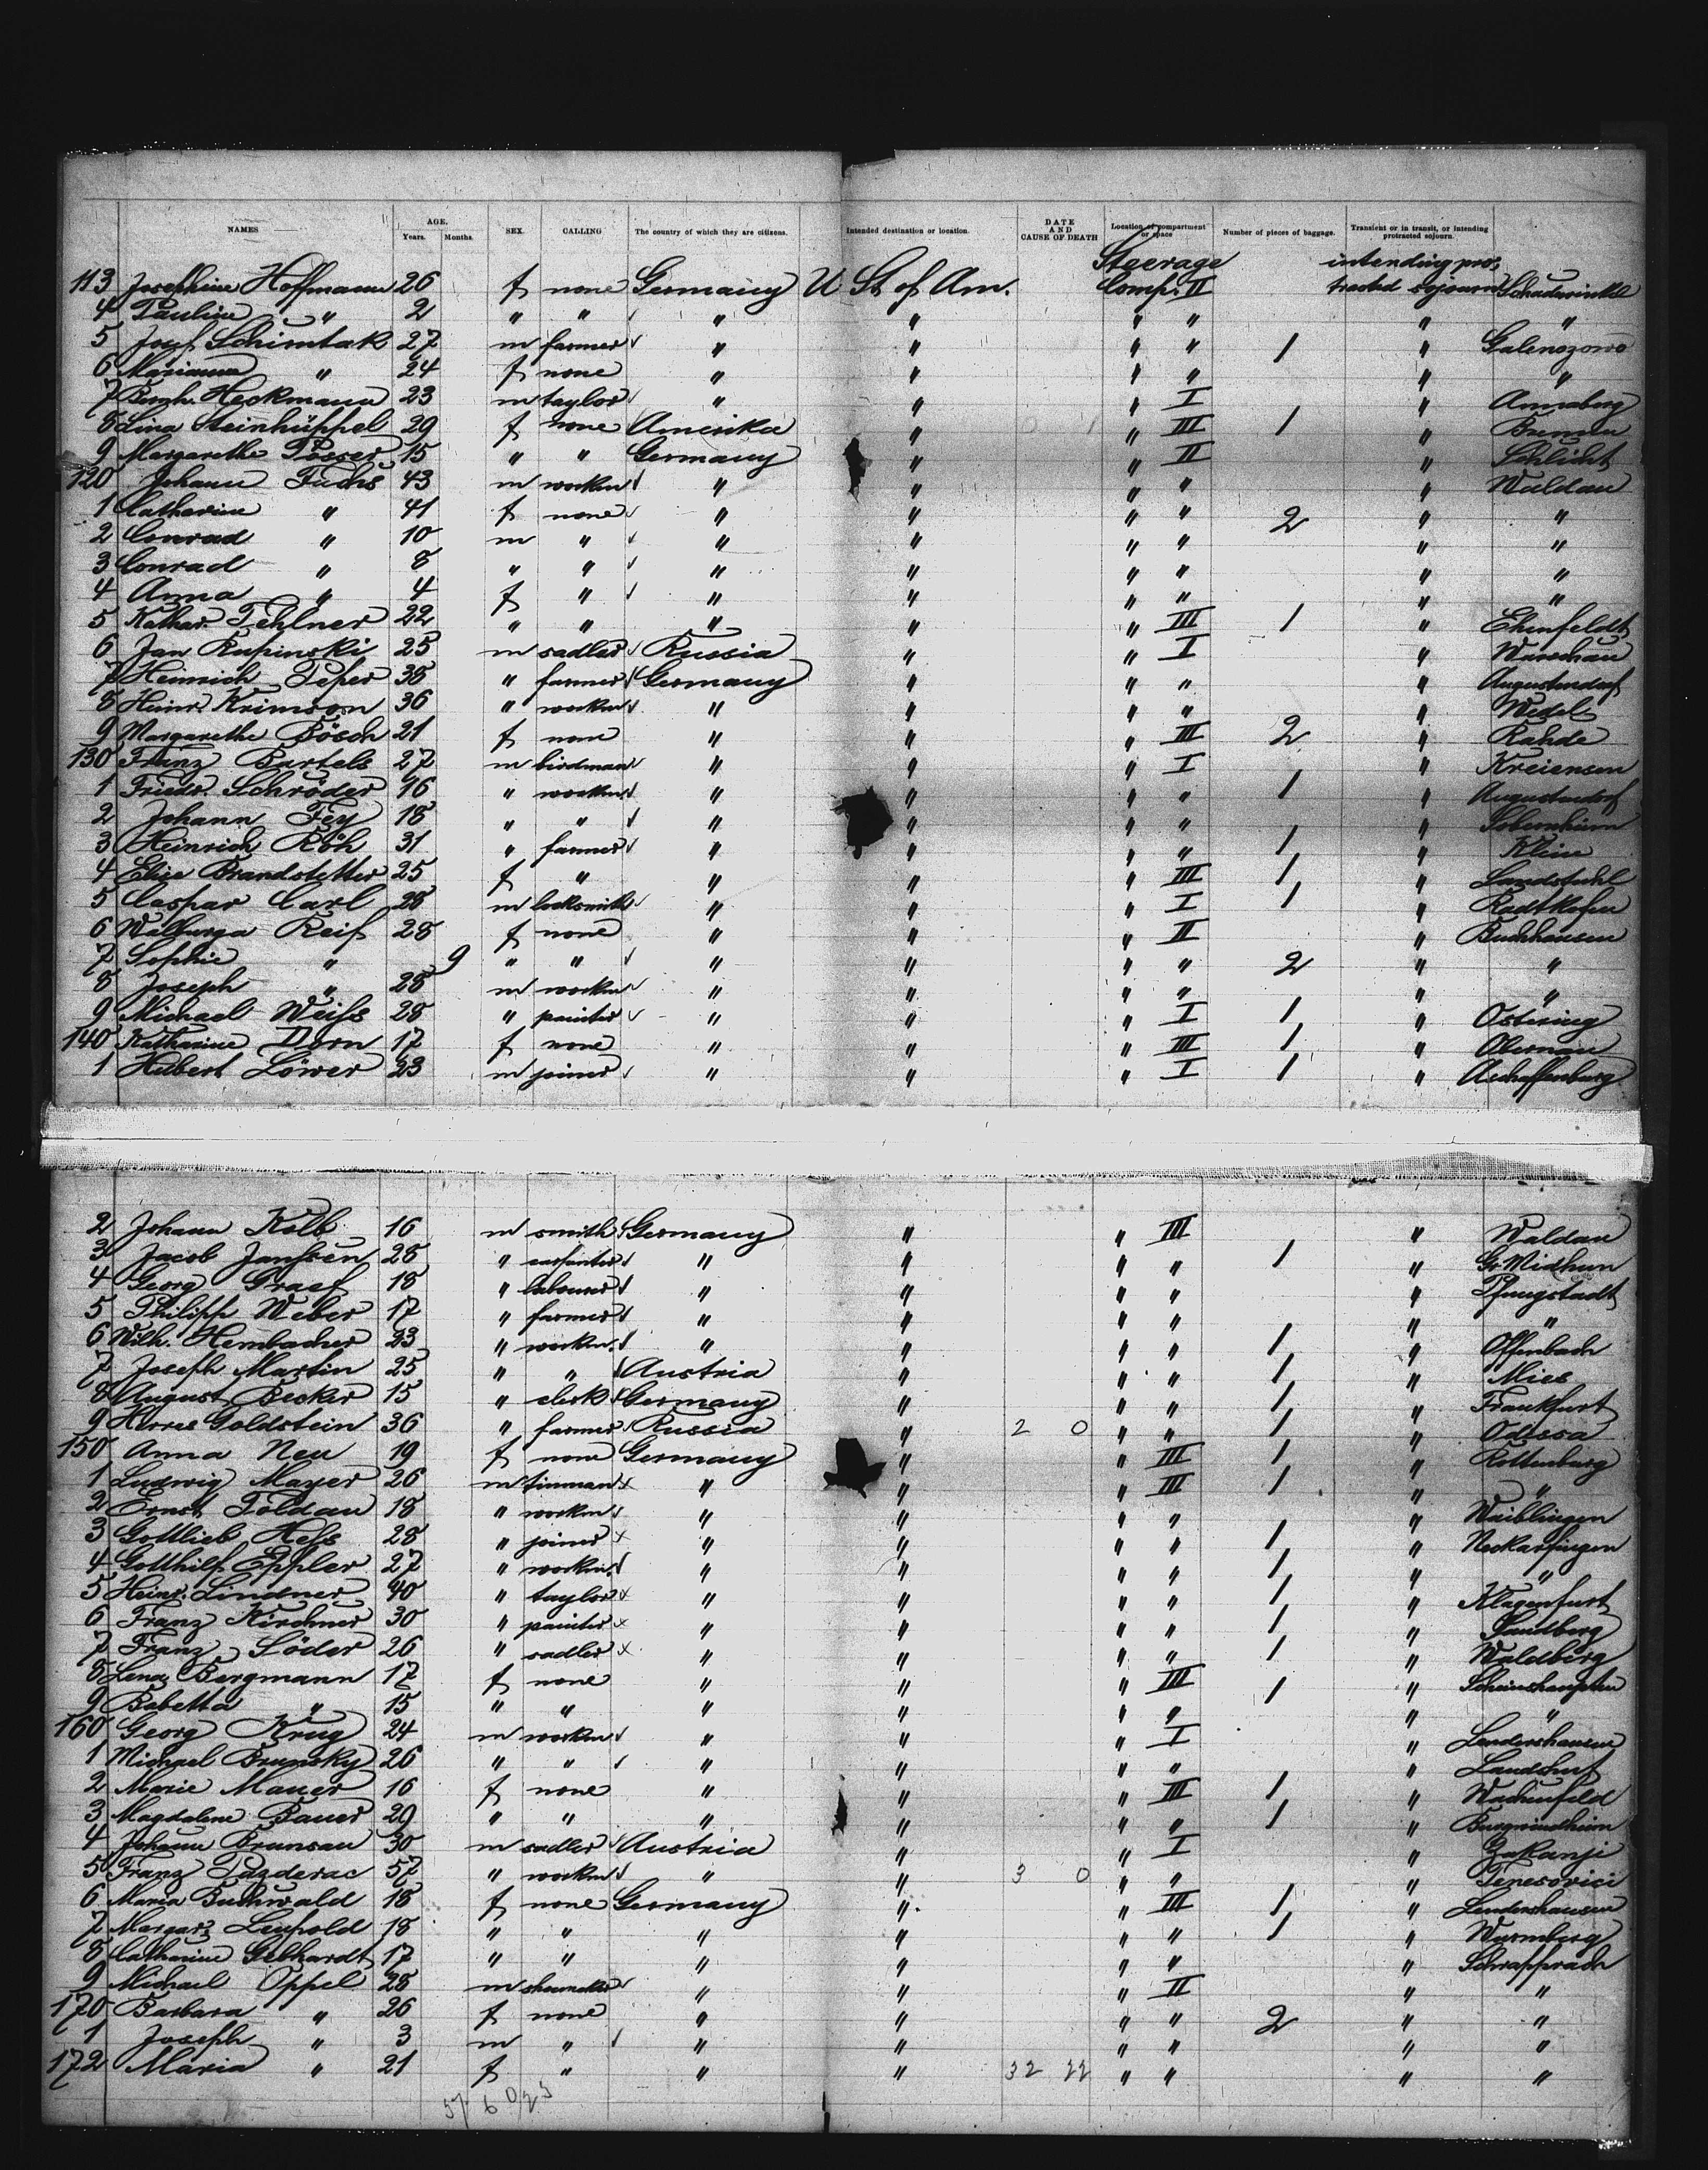 NAMES AGE. Years. Months. SEX. CALLING The country of which they are citizens. Intended destination or location. DATE AND CAUSE OF DEATH Location of compartment or space Number of pieces of baggage. Transient or in transit, or intending protracted sojourn.
113 Josephine Hoffmann 26 f none Germany U St of Am. Steerage Comp. II intending protracted sojourn
4 Pauline " 2 " " " " " " " "
5 Josef Schimtak 27 m farmer " " " " 1 "
6 Marianna " 24 f none " " " " " "
7 Bernh. Heckmann 23 m taylor " " " I " Annaberg
8 Lina Steinhüppel 29 f none Amerika " " III 1 " Bremen
9 Margarethe Posser 15 " " Germany " " II " Schlicht
120 Johann Fuchs 43 m workm " " " " " Waldau
1 Catharine " 41 f none " " " " 2 " "
2 Conrad " 10 m " " " " " " "
3 Conrad " 8 " " " " " " " "
4 Anna " 4 f " " " " " " "
5 Kathar. Fehlner 22 " " " " " III 1 " Ehenfeldt
6 Jan Rupinski 25 m sadler Russia " " I " Warschau
7 Heinrich Peper 38 " farmer Germany " " " " Augustendorf
8 Heinr. Krimson 36 " workm " " " " " Wedel
9 Margarethe Bösch 21 f none " " " III 2 " Rahde
130 Franz Bartels 27 m birdman " " " I " Kreiensen
1 Friedr. Schröder 16 " workm " " " " 1 " Augustendorf
2 Johann Fey 18 " " " " " " " Sobernheim
3 Heinrich Röh 31 " farmer " " " " 1 " Kleine
4 Elise Brandstetter 25 f " " " " III 1 " Landstuhl
5 Caspar Carl 28 m locksmith " " " I 1 " Radtkofen
6 Walburga Reif 28 f none " " " II " Buchhausen
7 Sophie " 9 " " " " " " 2 " "
8 Joseph " 28 m workm " " " " " "
9 Michael Weiss 28 " painter " " " I 1 " Ostering
140 Katharine Dorn 17 f none " " " III 1 " Obernau
1 Hubert Löwer 23 m joiner " " " I 1 " Aschaffenburg
2 Johann Kolb 16 m smith Germany " " III " Waldau
3 Jacob Janssen 28 " carpenter " " " " 1 " Gr. Midhun
4 Georg Graef 18 " labourer " " " " " Pfungstadt
5 Philipp Weber 17 " farmer " " " " " "
6 Wilh. Hembacher 23 " workm. " " " " 1 " Offenbach
7 Joseph Martin 25 " " Austria " " " 1 " Mies
8 August Becker 15 " clerk Germany " " " 1 " Frankfurt
9 Goldstein 36 " farmer Russia " 2 0 " " 1 " Odessa
150 Anna Neu 19 f none Germany " " III 1 " Rottenburg
1 Ludwig Mayer 26 m tinman " " " III 1 " "
2 Ernst Foldau 18 " workm " " " " " Waiblingen
3 Gottlieb Hess 28 " joiner " " " " 1 " Neckarfingen
4 Gotthilf Eppler 27 " workm. " " " " 1 " "
5 Heinr. Lindner 40 " taylor " " " " 1 " Klagenfurt
6 Franz Kirchner 30 " painter " " " " 1 " Sandberg
7 Franz Söder 26 " sadler " " " " 1 " Waldberg
8 Lena Bergmann 17 f none " " " III 1 "
9 Babetta " 15 " " " " " " " "
160 Georg Krug 24 m workm " " " I " Lendershausen
1 Michael Brunsky 26 " " " " " " " Landshut
2 Marie Mauer 16 f none " " " III 1 " Wachenfeld
3 Magdalene Bauer 20 " " " " " " 1 " Burgwindheim
4 Johann Brunsan 30 m sadler Austria " " I " Zakanji
5 Franz Pazderac 57 " workm " " 3 0 " " " Tenesovici
6 Maria Buchwald 18 f none Germany " " III 1 " Lendershausen
7 Margar. Leupold 18 " " " " " " 1 " Wurmberg
8 Catharine Gebhardt 17 " " " " " " " Schrapprach
9 Michael Oppel 28 m shoemaker " " " II " "
170 Barbara " 26 f none " " " " 2 " "
1 Joseph " 3 m " " " " " " "
172 Maria " 21 f " " " 32 22 " " " "